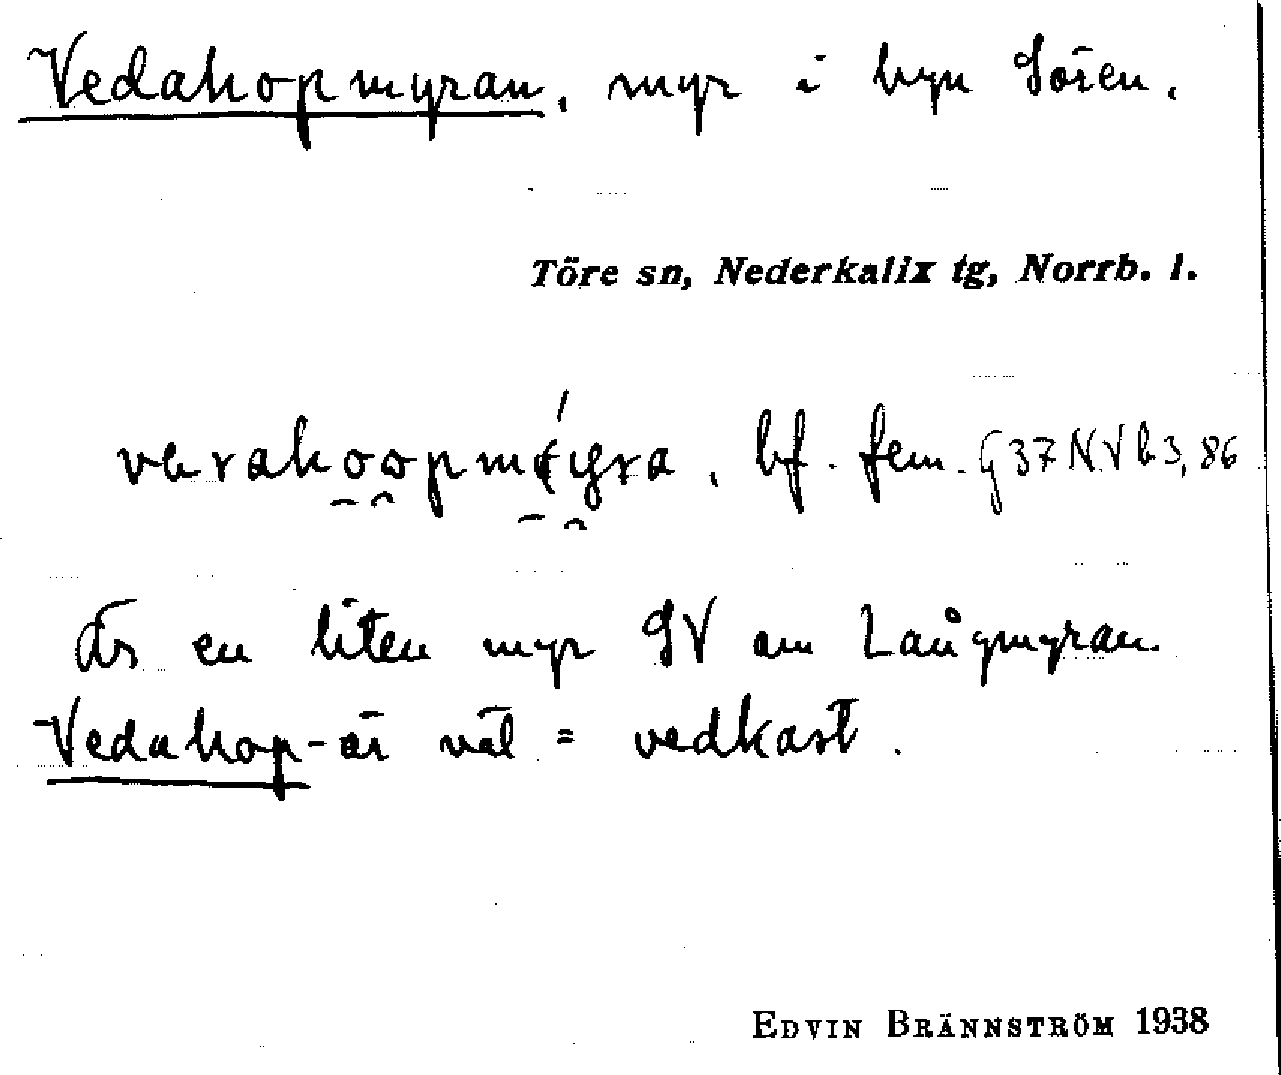 Vedahopmyran, myr i byn Sören.
Töre sn, Nederkalix tg, Norrb. l.
bf. fem. G 37 N.V b 3, 86
Är en liten myr SV om Långmyran.
Vedahop- är väl = vedkast.
EDVIN BRÄNNSTRÖM 1938